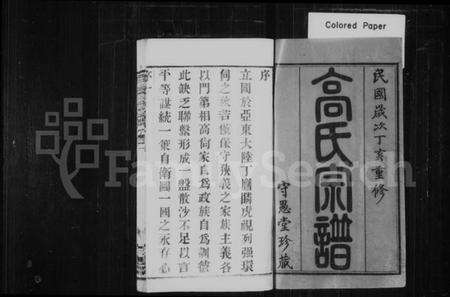 Colored Paper
民國歲次丁亥重修
高氏宗譜
守愚堂珍藏
序
立國於亞東大陸丁鷹瞵虎視列強環
伺之秋吾儕保守狹義之家族主義各
以門第相高向家自為政族自為訓欲
此缺乏聯繫形成一盤散沙不足以言
平等謀統一秉自衛圖一國之永存必
FamilySearch